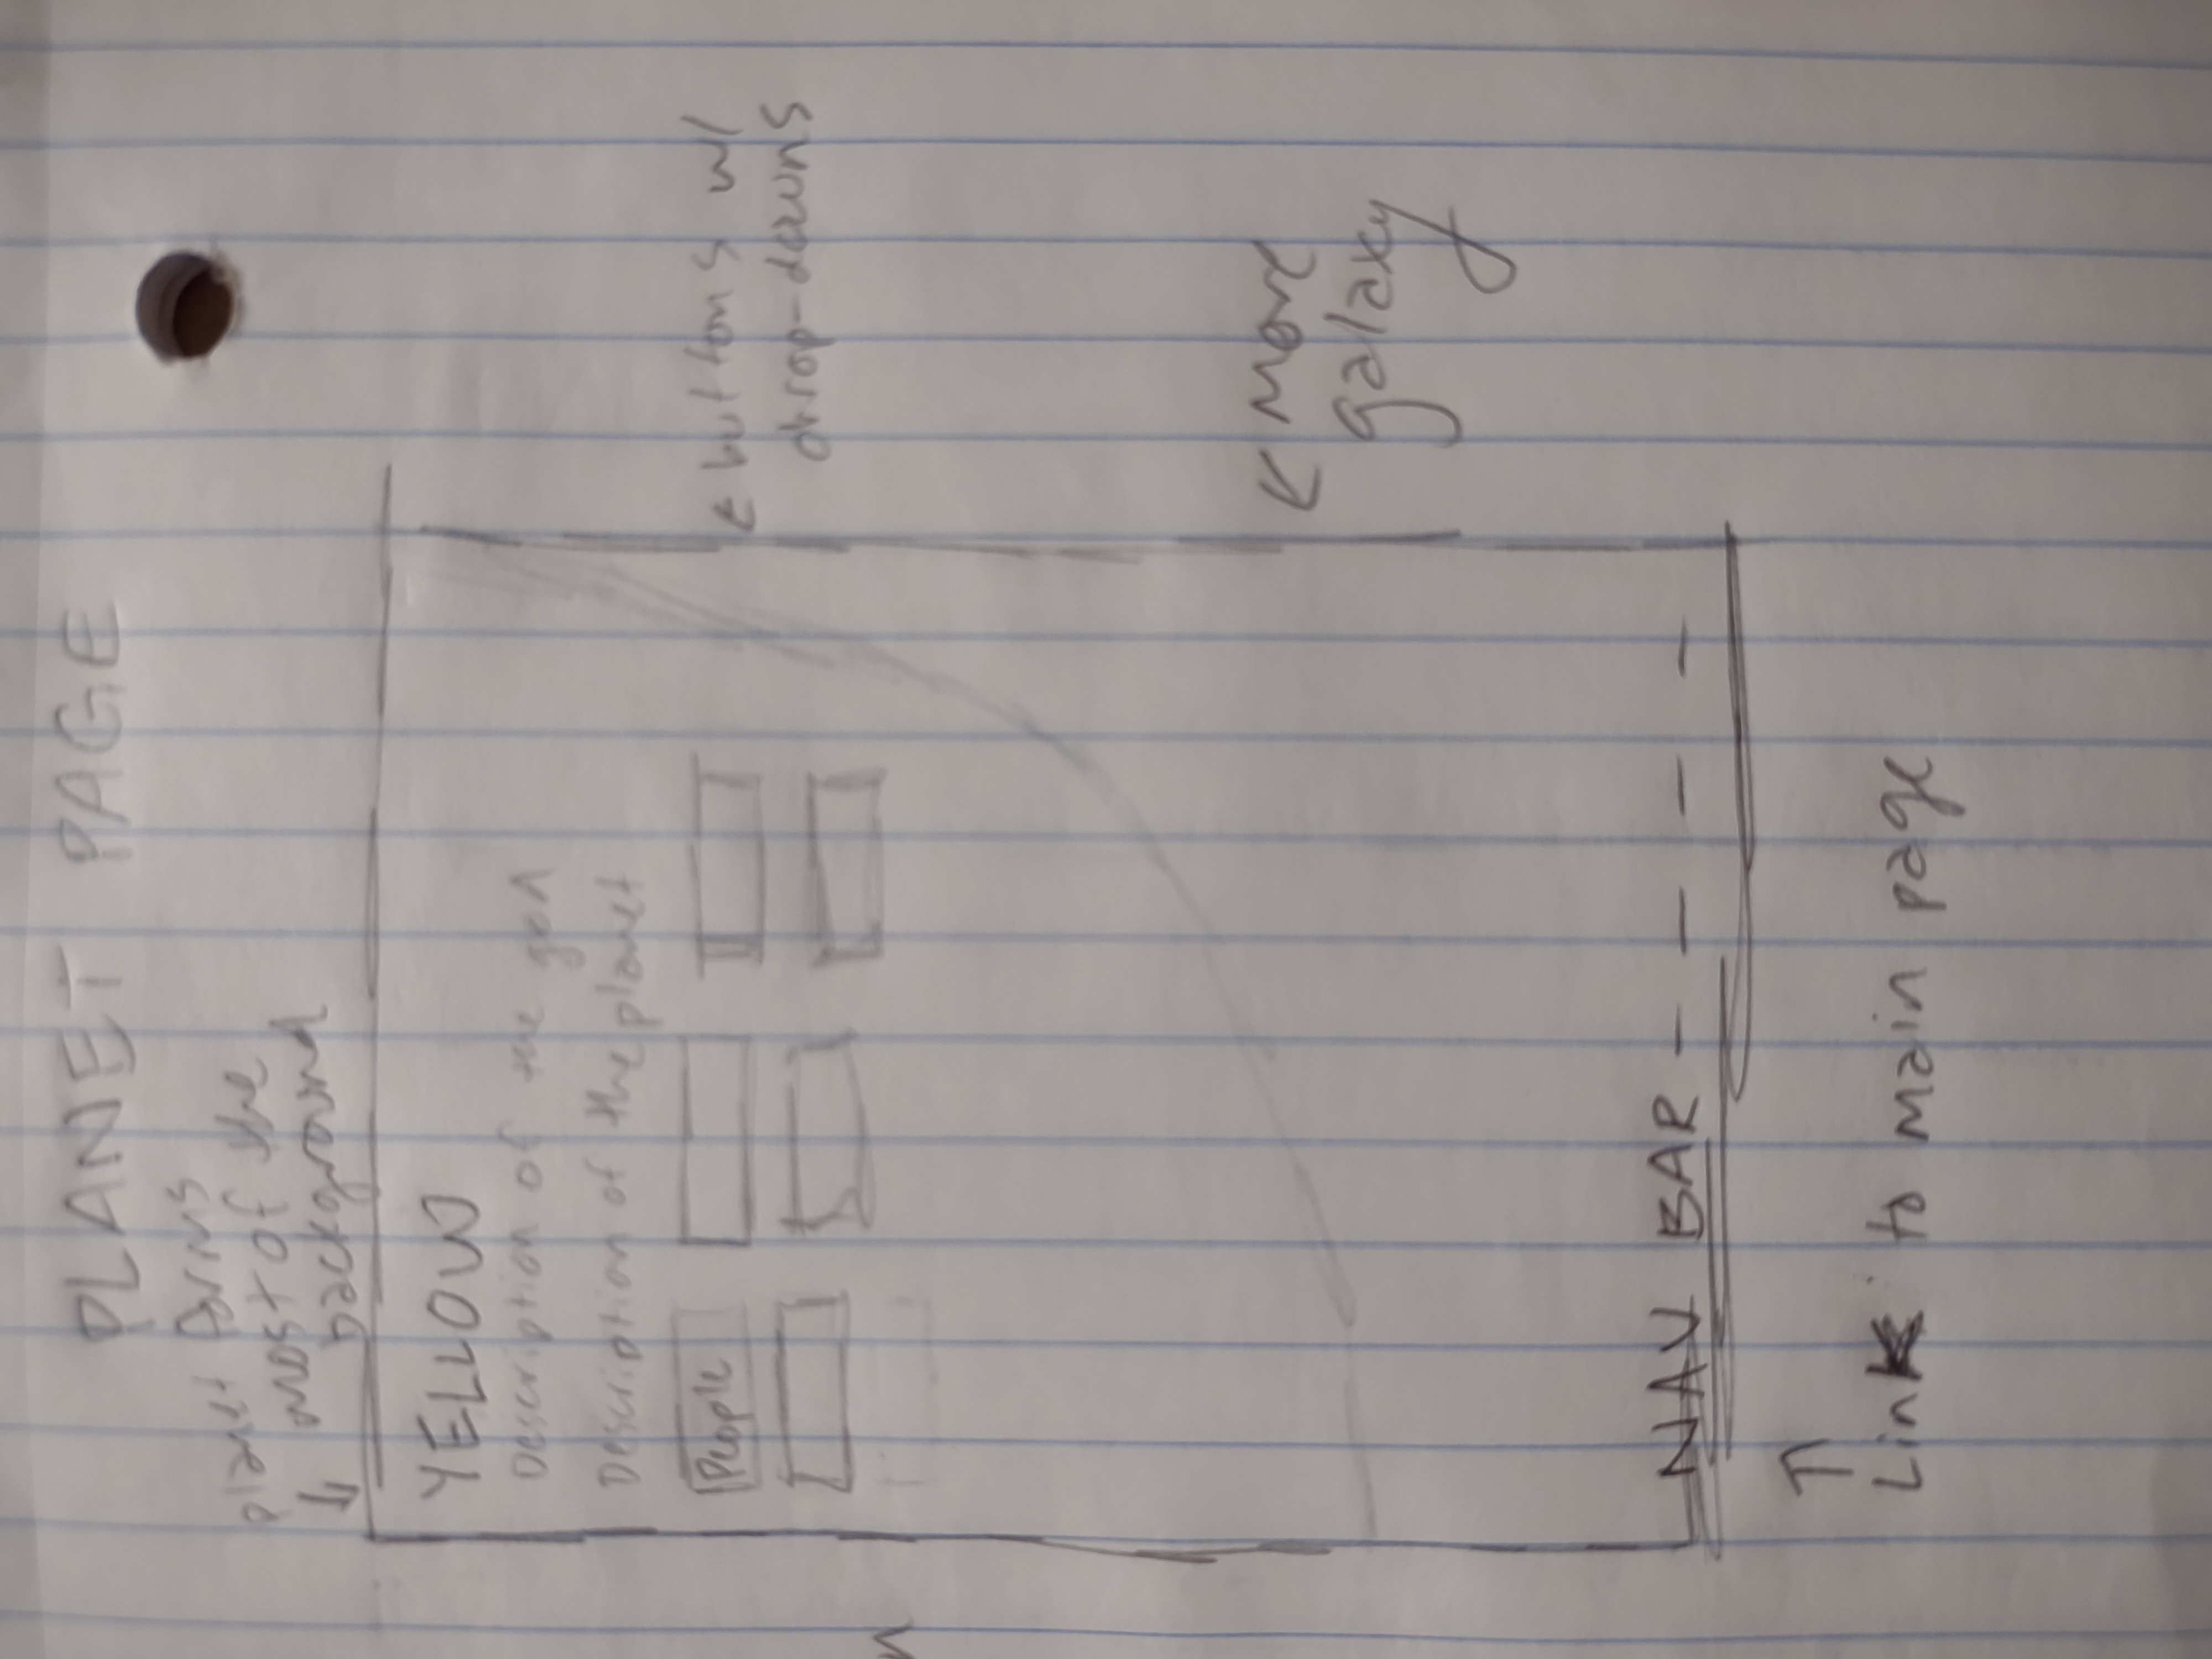 PLANET PAGE
planet forms
most of the
background
YELLOW
Description of the god
Description of the planet
People
buttons w/
drop-downs
More
galaxy
NAV BAR - - - -
Link to main page